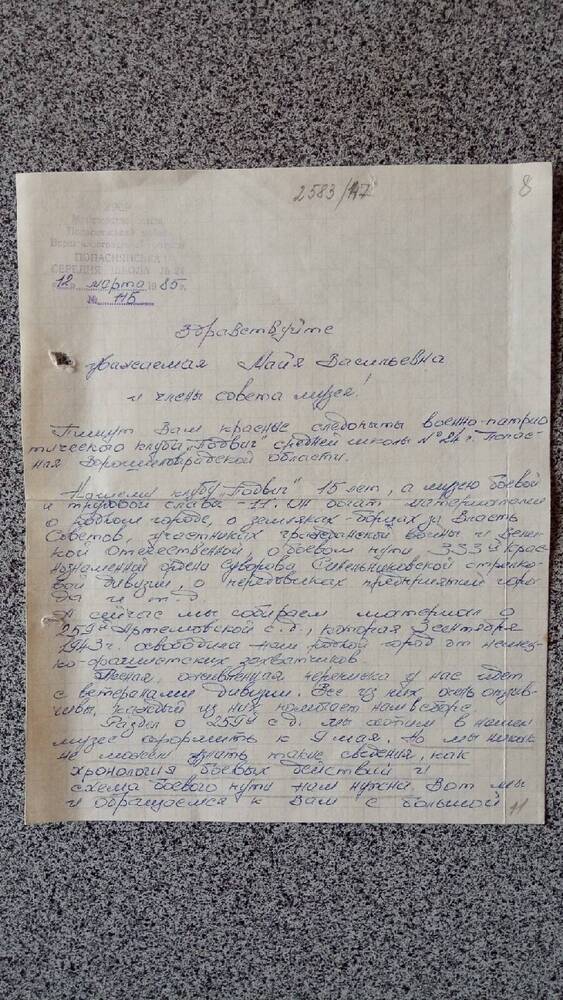 2583/147
8
УРСР
ПОПАСНЯНСЬКА
СЕРЕДНЯ ШКОЛА № 24
12 марта 1985 г.
№ 115
Здравствуйте
уважаемая Майя Васильевна
и члены совета музея!
Пишут Вам красные следопыты военно-патрио
тического клуба "Подвиг" средней школы № 24 г. Попас-
ная Ворошиловградской области.
Нашему клубу "Подвиг" 15 лет, а музею боевой
и трудовой славы - 11. Он богат материалами
о родном городе, о земляках-борцах за Власть
Советов, участниках гражданской войны и Вели-
кой Отечественной, о боевом пути 333й Крас-
нознаменной ордена Суворова Синельниковской стрелко-
вой дивизии, о передовиках предприятий горо-
да и т.д.
А сейчас мы собираем материал о
259й Артемовской с.д., которая 3 сентября
1943 г. освободила наш родной город от немец-
ко-фашистских захватчиков.
Тесная, оживленная переписка у нас идет
с ветеранами дивизии. Все из них очень отзыв-
чивы, каждый из них помогает нам в сборе.
Раздел о 259й с.д. мы хотим в нашем
музее оформить к 9 мая. Но мы никак
не можем узнать такие сведения, как
хронология боевых действий и
схема боевого пути нам нужна. Вот мы
и обращаемся к Вам с большой
11